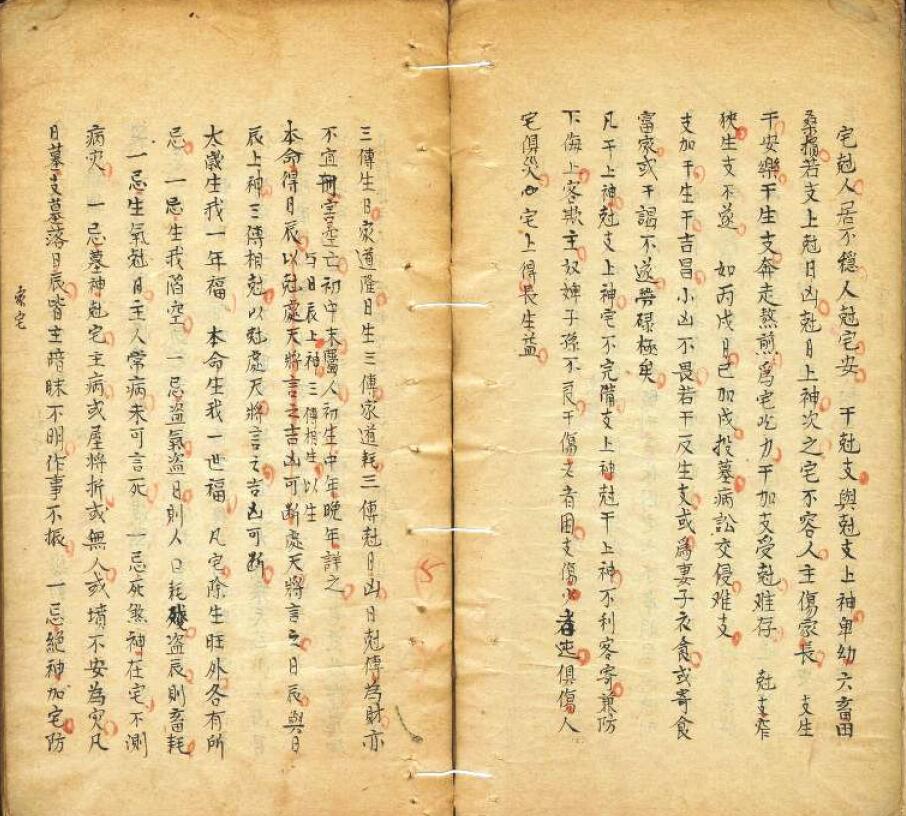 宅尅人居不穩人尅宅安 干尅支與尅支上神卑幼六畜田
桑損若支上尅日凶尅日上神次之宅不容人主傷家長 支生
干安樂干生支奔走熬煎為宅吃力干加支受尅难存 尅支窄
狹生支不遂 如丙戌日巳加戌投墓病訟交侵难支
支加干生干吉昌小凶不畏若干反生支或為妻子衣食或寄食
富家或干謁不遂勞碌極矣
凡干上神尅支上神宅不完備支上神尅干上神不利客寄兼防
下侮上客欺主奴婢子孫不良干傷支者困支傷干者迍俱傷人
宅俱災凶宅上得長生益
三傳生日家道隆日生三傳家道耗三傳尅日凶日尅傳為財亦
不宜刑害空亡初中末屬人初生中年晚年詳之
与日辰上神三傳相生以生
本命得日辰以尅處天將言之吉凶可断處天將言之日辰與日
辰上神三傳相尅以尅處天將言之吉凶可断
太歲生我一年福 本命生我一世福 凡宅除生旺外各有所
忌 一忌生我陷空 一忌盗氣盗日則人口耗殘盗辰則畜耗
一忌生氣尅日主人常病未可言死 一忌死煞神在宅不測
病灾 一忌墓神尅宅主病或屋將折或無人或墳不安為灾凡
日墓支墓落日辰皆主暗昧不明作事不振 一忌絕神加宅防
家宅
5